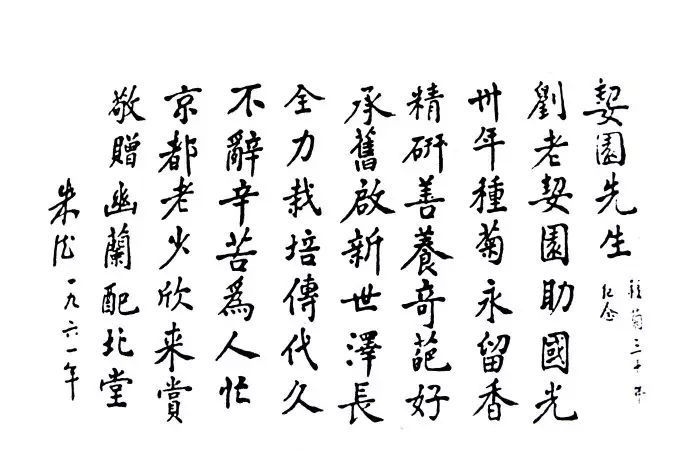 契園先生
種菊三十年
紀念
劉老契園助國光
卅年種菊永留香
精研善養奇葩好
承舊啟新世澤長
全力栽培傳代久
不辭辛苦為人忙
京都老少欣来賞
敬贈幽蘭配北堂
朱德一九六一年